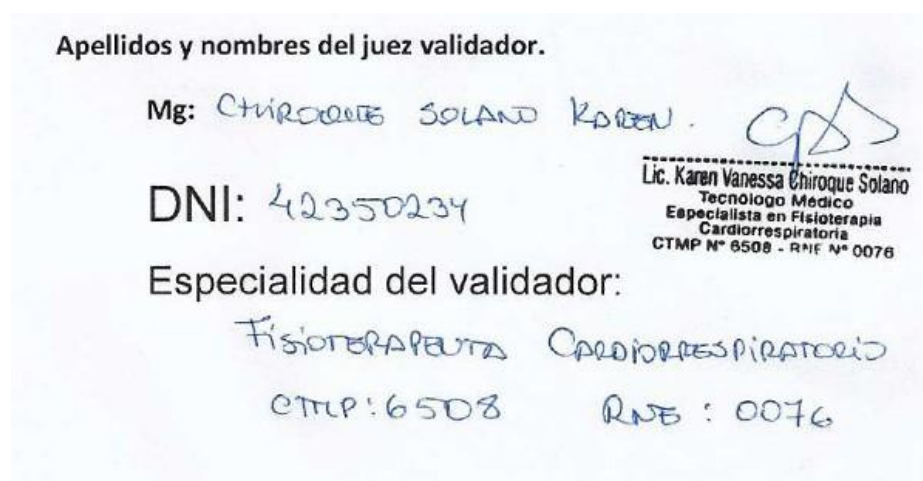 Apellidos y nombres del juez validador.
Mg: CHIROQUE SOLANO KAREN.
Lic. Karen Vanessa Chiroque Solano
Tecnologo Médico
Especialista en Fisioterapia
Cardiorrespiratoria
CTMP N° 6508 - RNE N° 0076
DNI: 42350234
Especialidad del validador:
FISIOTERAPEUTA CARDIORRESPIRATORIO
CTMP: 6508 RNE: 0076